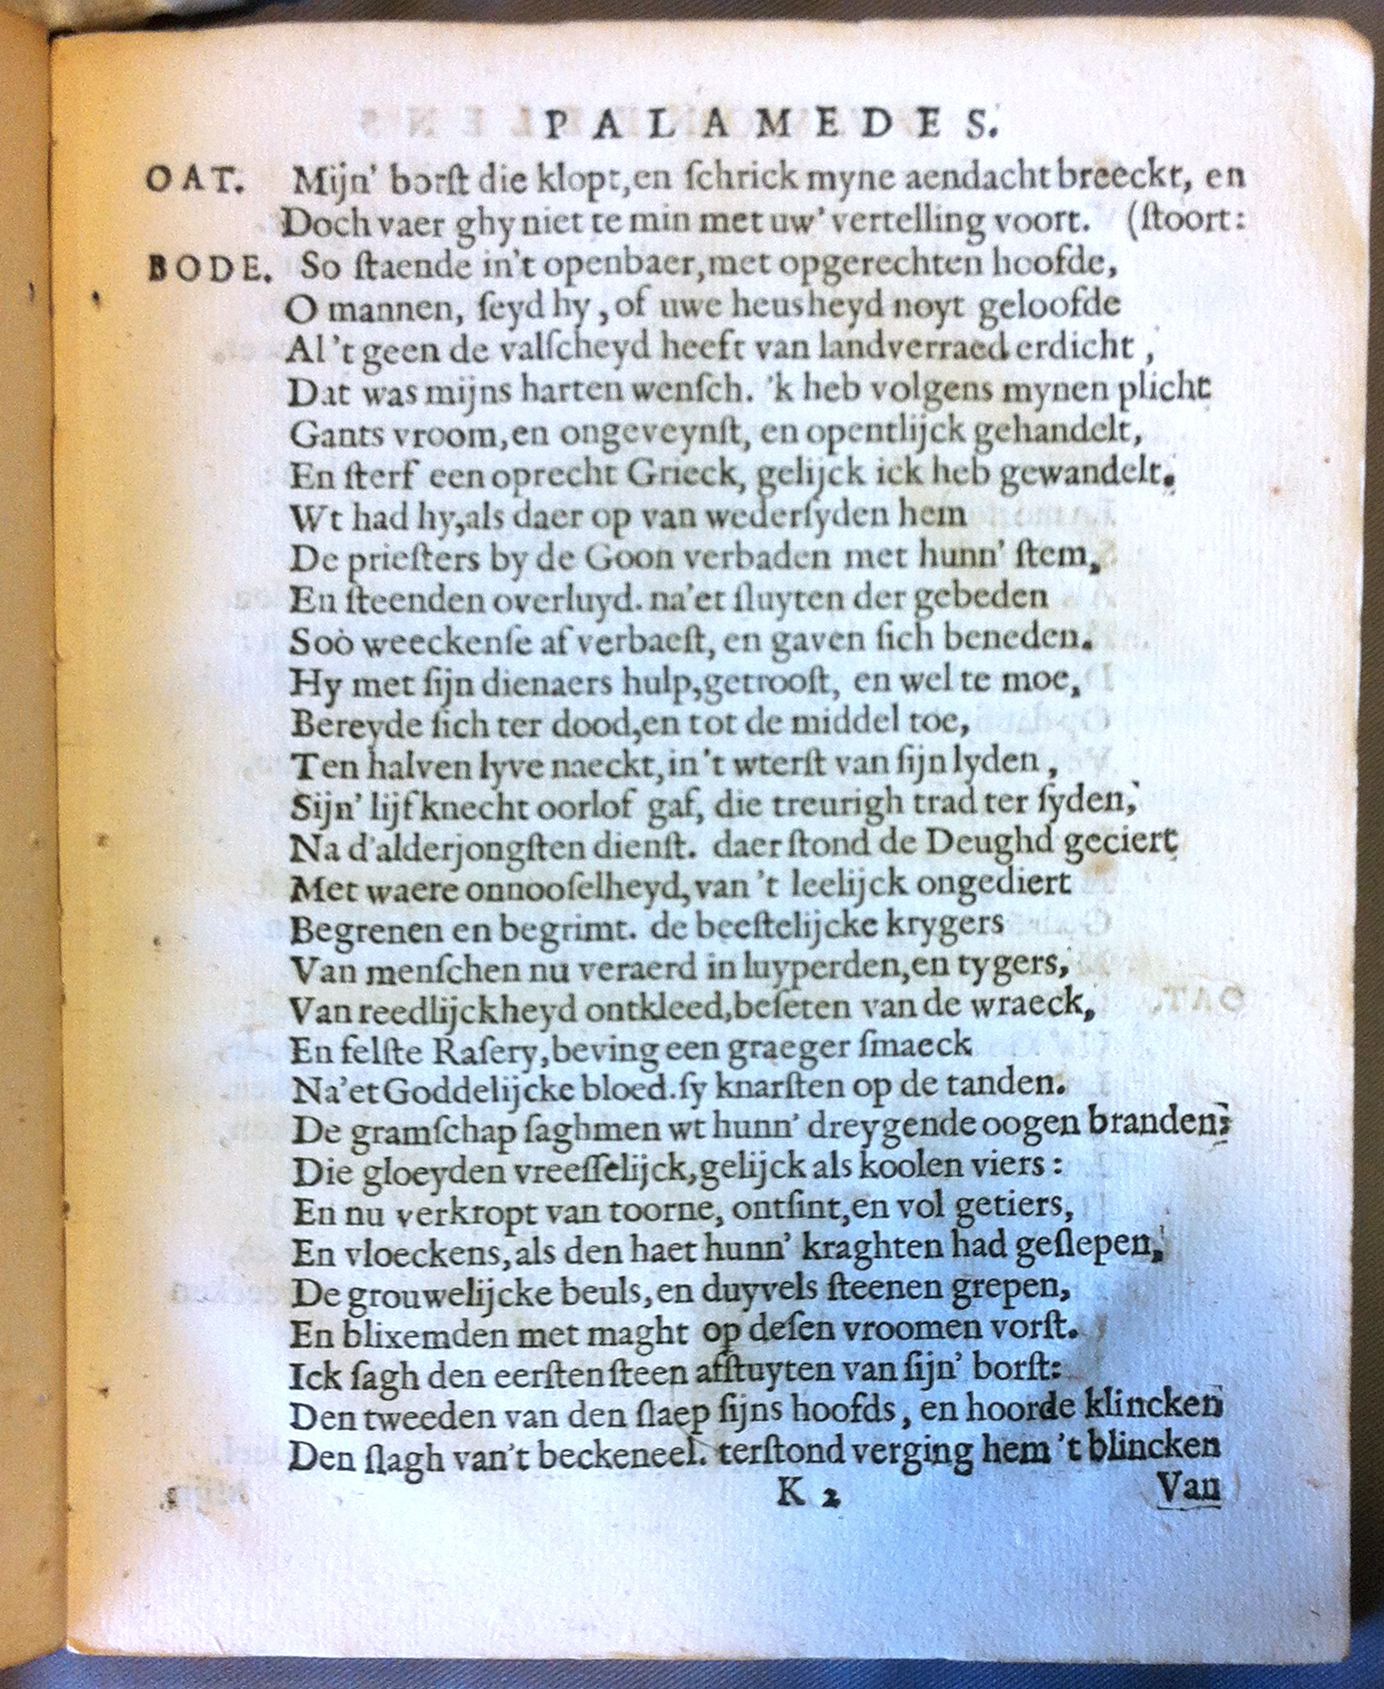 PALAMEDES.
OAT. Mijn' borſt die klopt, en ſchrick myne aendacht breeckt, en
Doch vaer ghy niet te min met uw' vertelling voort. (ſtoort:
BODE. So ſtaende in't openbaer, met opgerechten hoofde,
O mannen, ſeyd hy, of uwe heusheyd noyt geloofde
Al 't geen de valſcheyd heeft van landverraed erdicht,
Dat was mijns harten wenſch. 'k heb volgens mynen plicht
Gants vroom, en ongeveynſt, en opentlijck gehandelt,
En ſterf een oprecht Grieck, gelijck ick heb gewandelt.
Wt had hy, als daer op van wederſyden hem
De prieſters by de Goon verbaden met hunn' ſtem,
En ſteenden overluyd. na'et ſluyten der gebeden
Soo weeckenſe af verbaeſt, en gaven ſich beneden.
Hy met ſijn dienaers hulp, getrooſt, en wel te moe,
Bereyde ſich ter dood, en tot de middel toe,
Ten halven lyve naeckt, in 't wterſt van ſijn lyden,
Sijn' lijfknecht oorlof gaf, die treurigh trad ter ſyden,
Na d'alderjongſten dienſt. daer ſtond de Deughd geciert
Met waere onnooſelheyd, van 't leelijck ongediert
Begrenen en begrimt. de beeſtelijcke krygers
Van menſchen nu veraerd in luyperden, en tygers,
Van reedlijckheyd ontkleed, beſeten van de wraeck,
En felſte Raſery, beving een graeger ſmaeck
Na'et Goddelijcke bloed. ſy knarſten op de tanden.
De gramſchap ſaghmen wt hunn' dreygende oogen branden;
Die gloeyden vreeſſelijck, gelijck als koolen viers:
En nu verkropt van toorne, ontſint, en vol getiers,
En vloeckens, als den haet hunn' kraghten had geſlepen,
De grouwelijcke beuls, en duyvels ſteenen grepen,
En blixemden met maght op deſen vroomen vorſt.
Ick ſagh den eerſten ſteen afſtuyten van ſijn' borſt:
Den tweeden van den ſlaep ſijns hoofds, en hoorde klincken
Den ſlagh van't beckeneel. terſtond verging hem 't blincken
K 2 Van